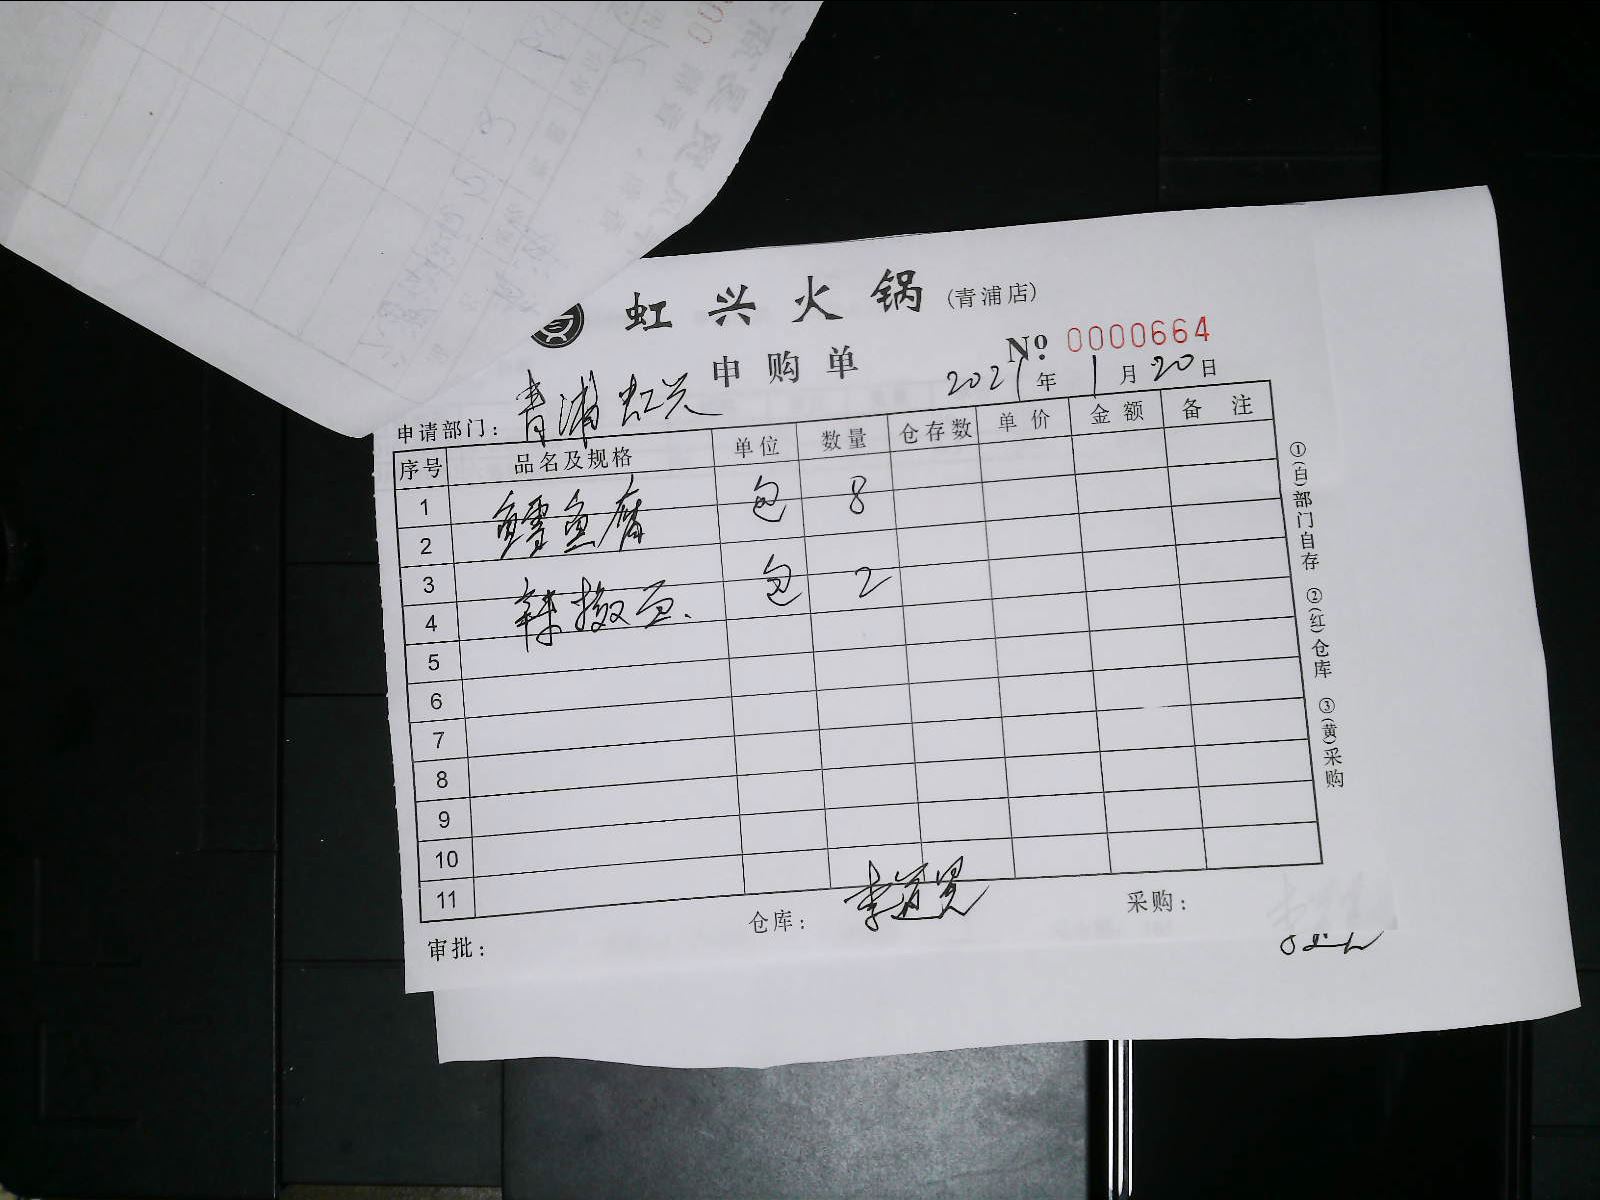 虹兴火锅(青浦店)
申购单
№ 0000664
申请部门: 青浦虹兴 2021年1月20日
序号 品名及规格 单位 数量 仓存数 单价 金额 备注
1 鳕鱼腐 包 8
2
3
4 辣撒 包 2
5
6
7
8
9
10
11
审批: 仓库: 李 采购:
①(白)部门自存 ②(红)仓库 ③(黄)采购